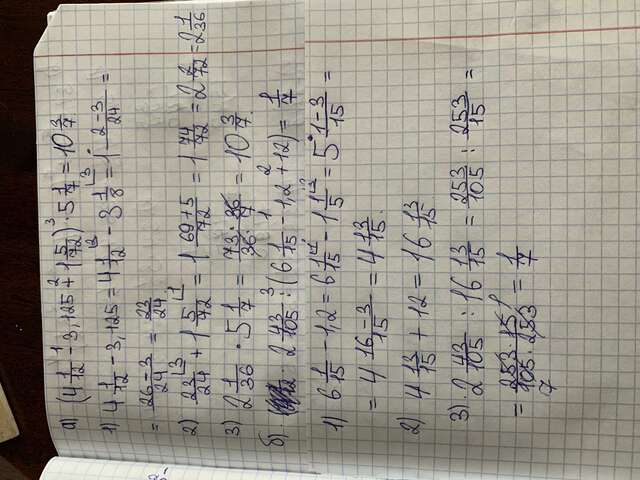 а) (4 1/12 - 3,125 + 1 5/72) · 5 1/7 = 10 3/7
1) 4 1/12 - 3,125 = 4 1/12 - 3 1/8 = 1 (2-3)/24 =
= (26-3)/24 = 23/24
2) 23/24 + 1 5/72 = 1 (69+5)/72 = 1 74/72 = 2 2/72 = 2 1/36
3) 2 1/36 · 5 1/7 = (73 · 36)/(36 · 7) = 10 3/7
б) 2 43/105 : (6 1/15 - 1,2 + 12) = 1/7
1) 6 1/15 - 1,2 = 6 1/15 - 1 1/5 = 5 (1-3)/15 =
= 4 (16-3)/15 = 4 13/15
2) 4 13/15 + 12 = 16 13/15
3) 2 43/105 : 16 13/15 = 253/105 : 253/15 =
= (253 · 15)/(105 · 253) = 1/7